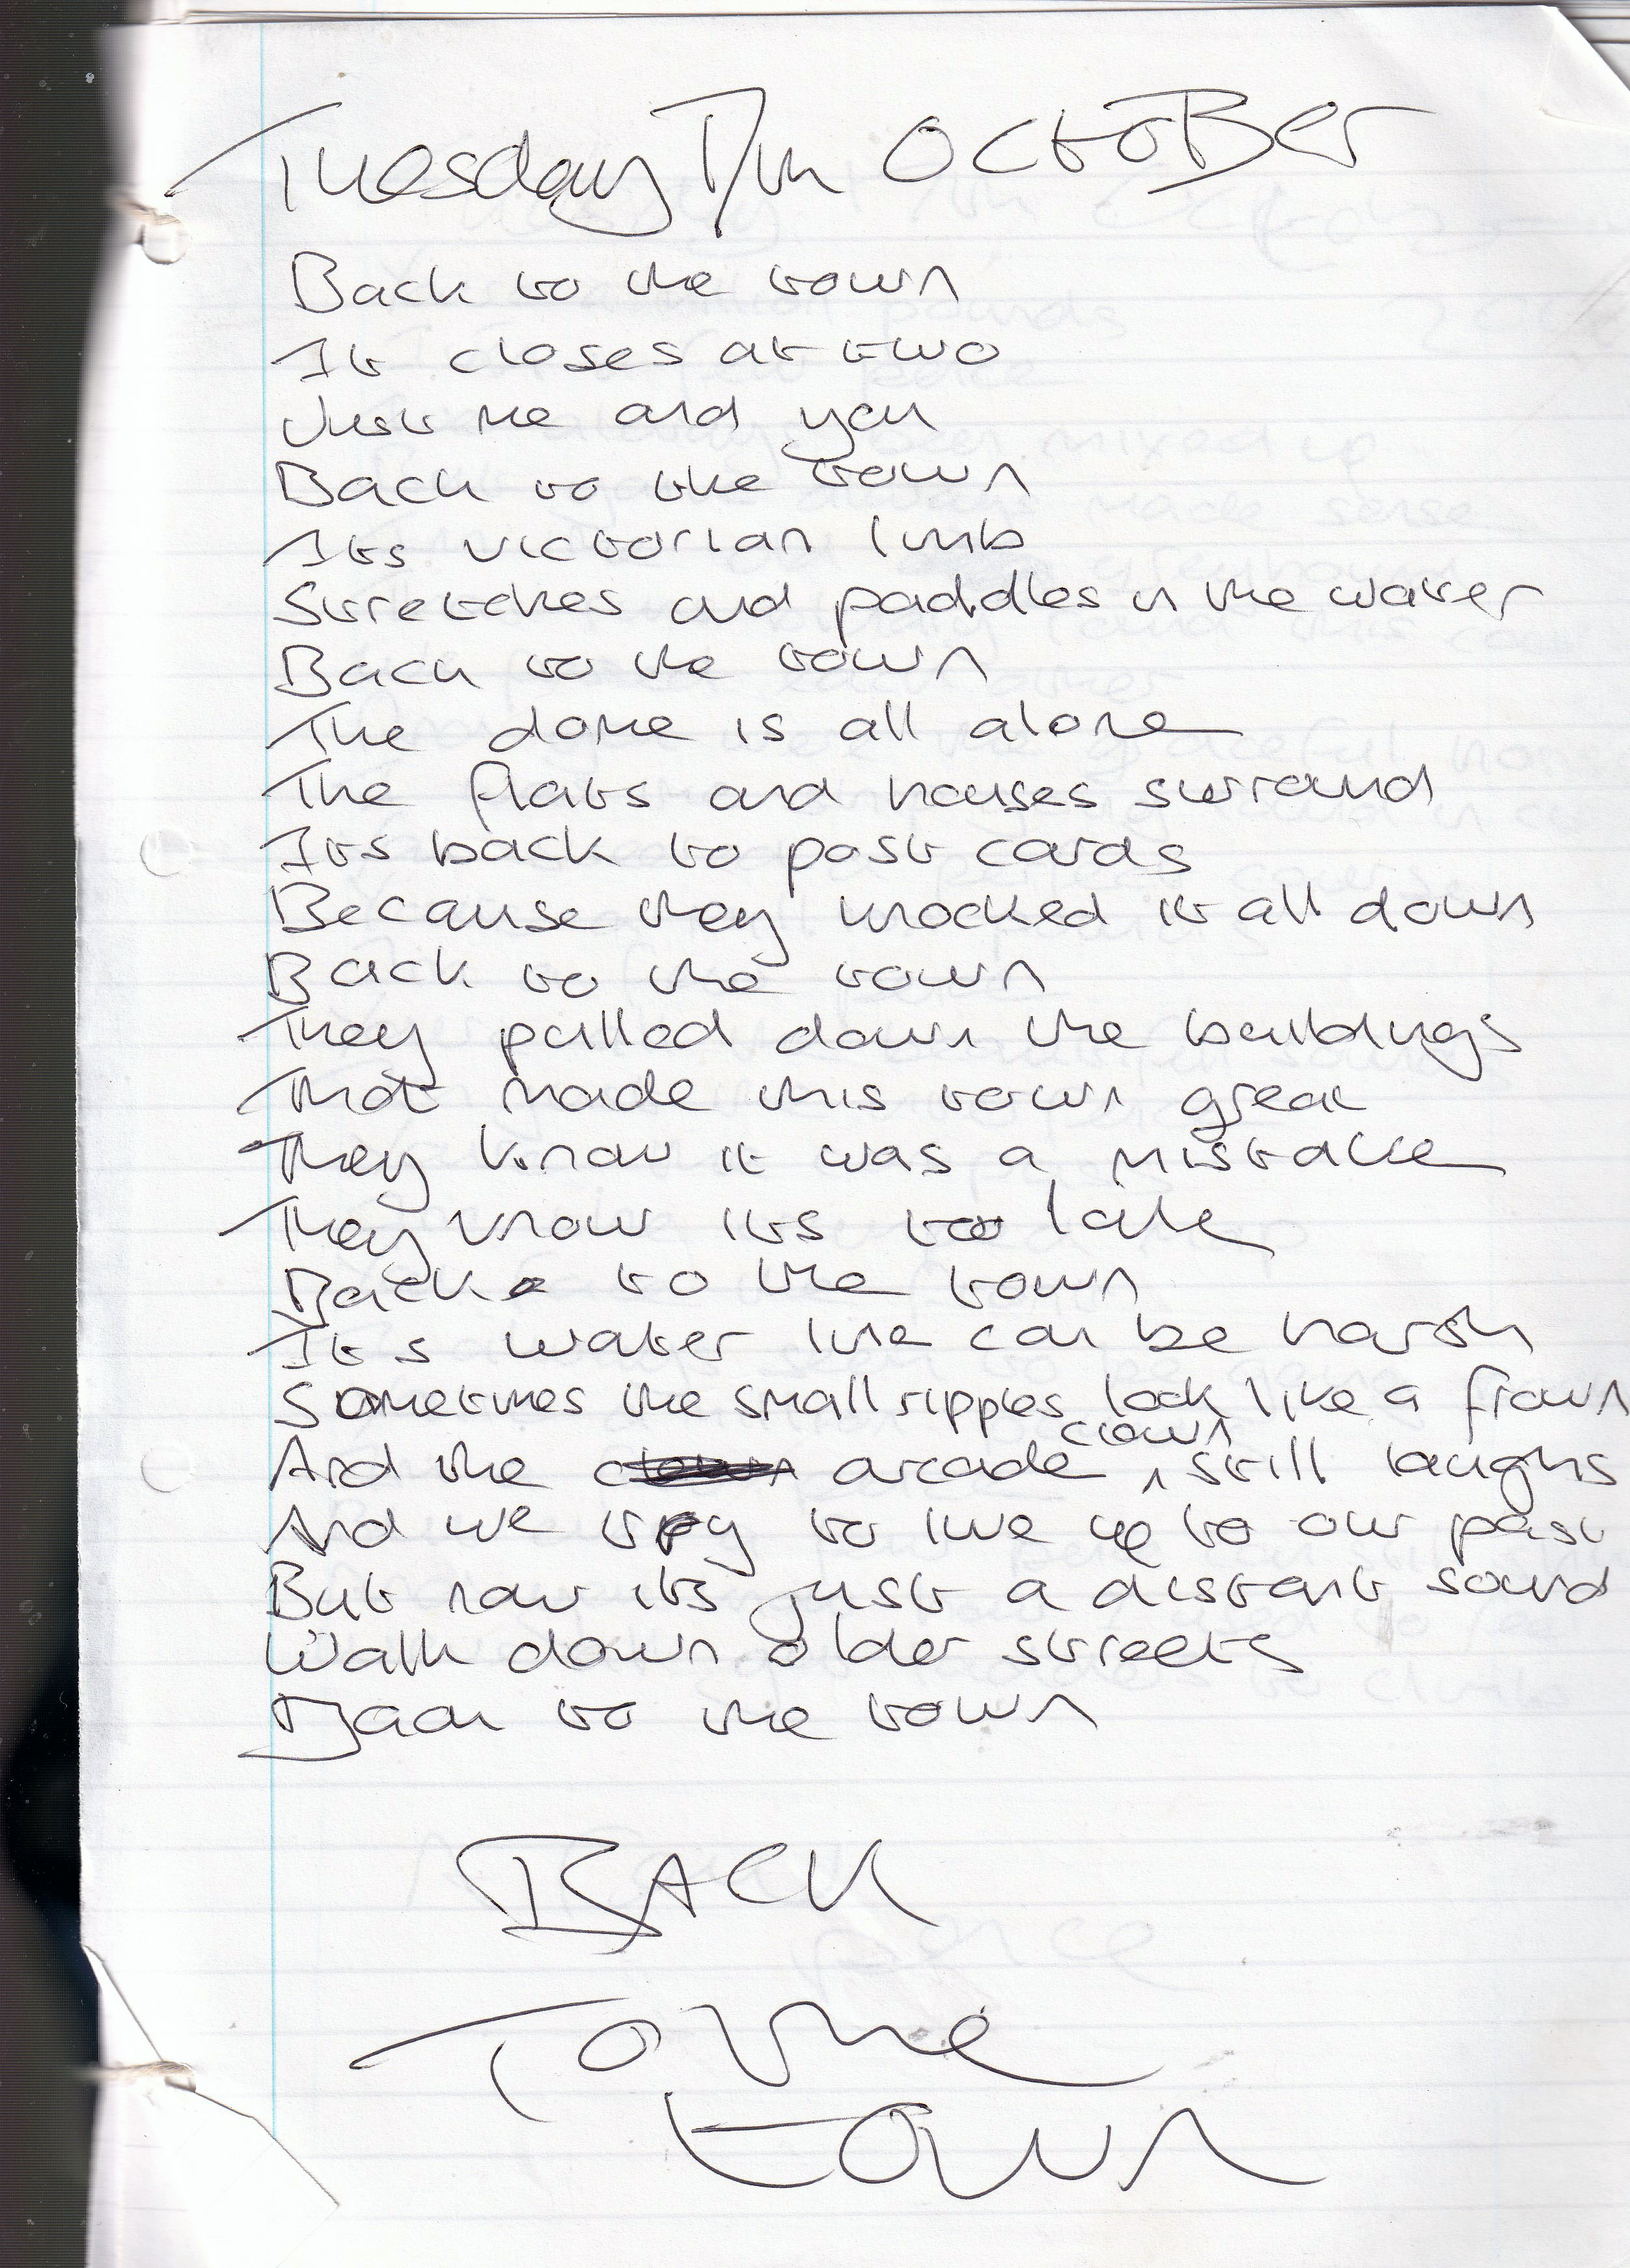 Tuesday 17th OCtoBer
Back to the town
It closes at two
Just me and you
Back to the town
Its victorian limb
Stretches and paddles in the water
Back to the town
The dome is all alone
The flats and houses surround
Its back to post cards
Because they knocked it all down
Back to the town
They pulled down the buildings
That made this town great
They know it was a mistake
They know its too late
Back to the town
Its water line can be harsh
Sometimes the small ripples look like a frown
And the arcade clown still laughs
And we try to live up to our past
But now its just a distant sound
Walk down older streets
Back to the town
BACK
To the
town